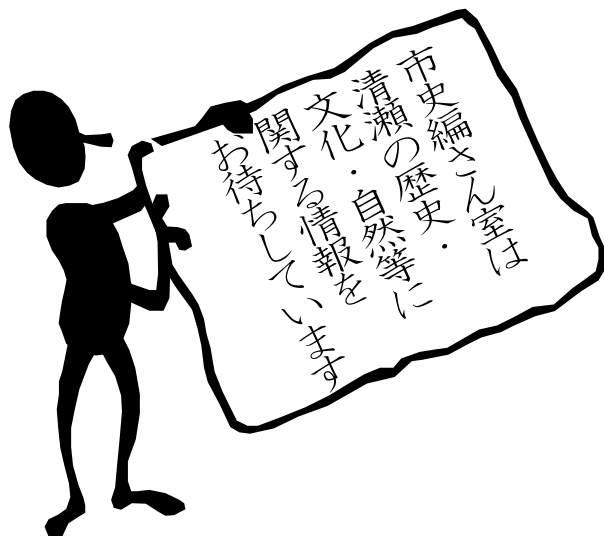 市史編さん室は
清瀬の歴史・
文化・自然等に
関する情報を
お待ちしています